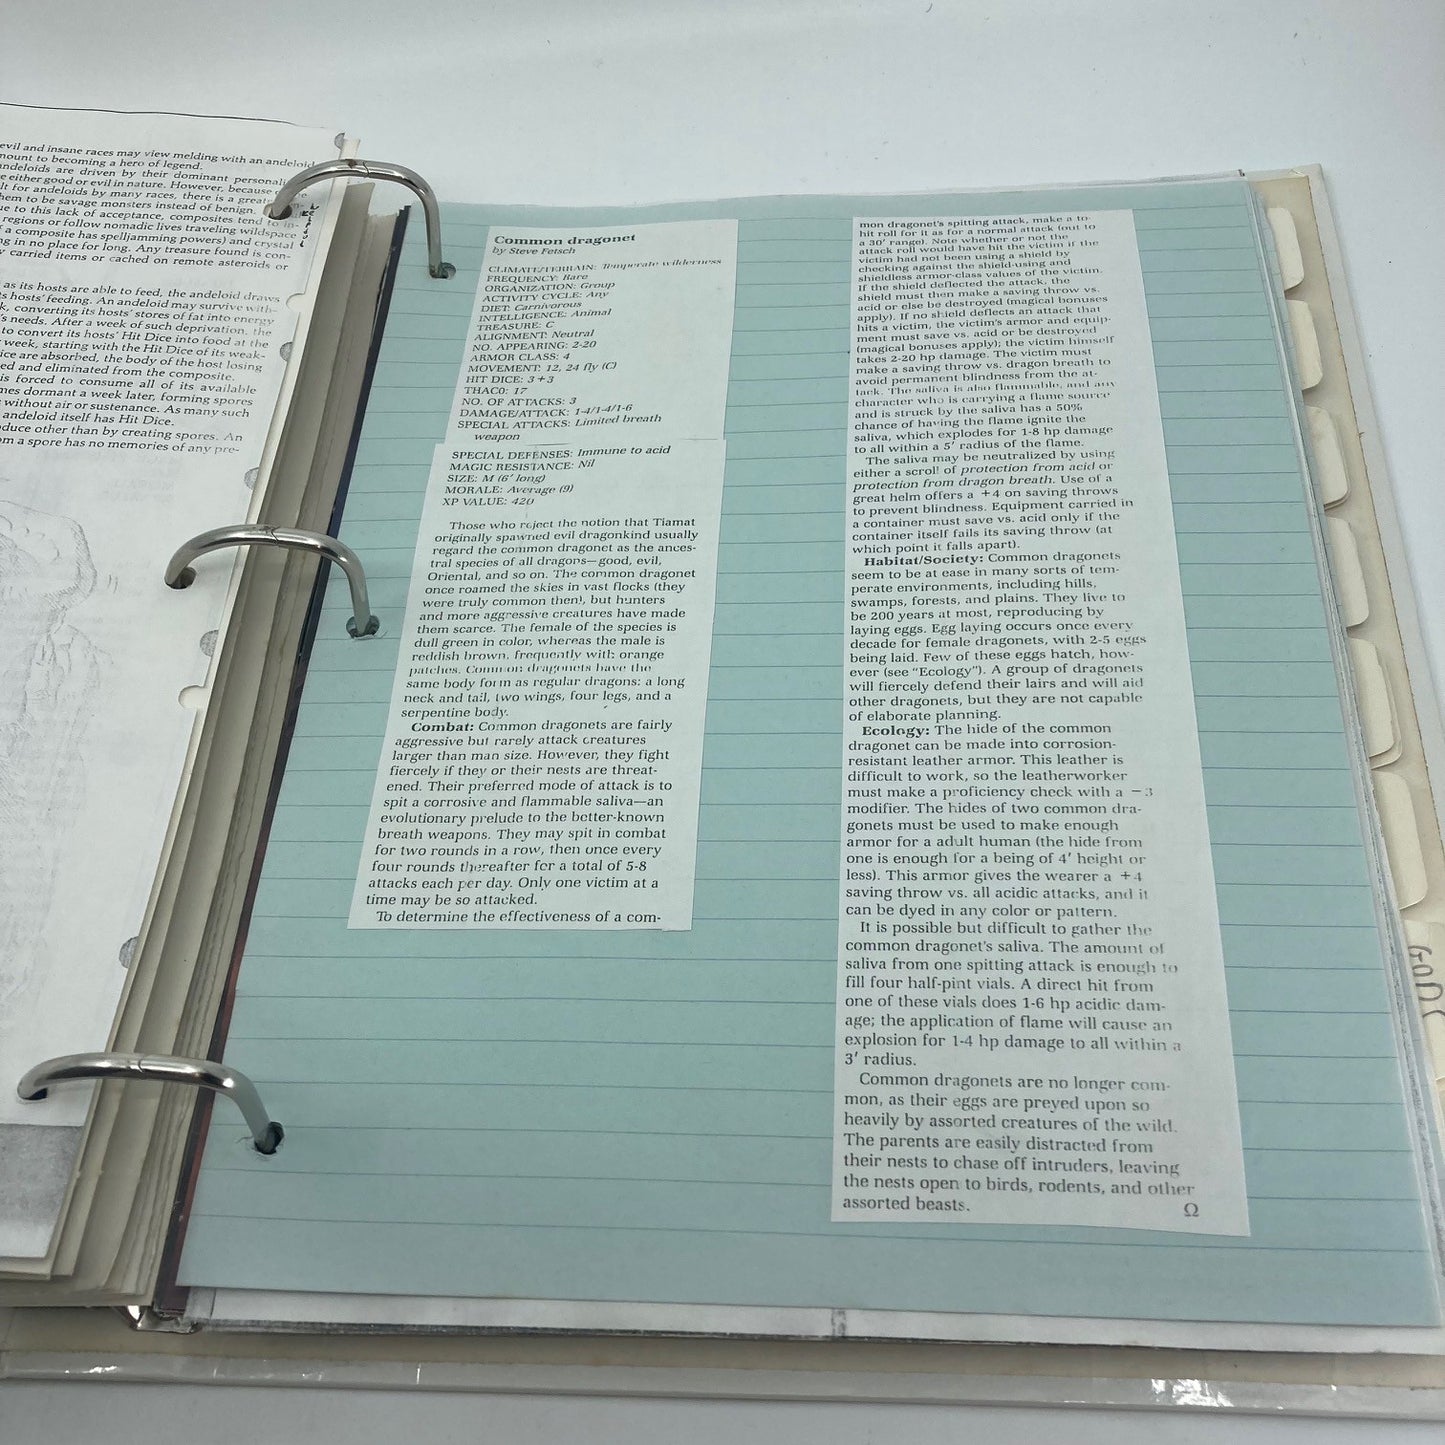 evil and insane races may view melding with an andeloid
mount to becoming a hero of legend.
andeloids are driven by their dominant
either good or evil in nature. However, because
lt for andeloids by many races, there is a great
hem to be savage monsters instead of benign.
ue to this lack of acceptance, composites tend to
regions or follow nomadic lives traveling wildspace
a composite has spelljamming powers) and crystal
ng in no place for long. Any treasure found is con-
carried items or cached on remote asteroids or
as its hosts are able to feed, the andeloid draws
ts hosts' feeding. An andeloid may survive with-
k, converting its hosts' stores of fat into energy
's needs. After a week of such deprivation, the
to convert its hosts' Hit Dice into food at the
week, starting with the Hit Dice of its weak-
ice are absorbed, the body of the host losing
ed and eliminated from the composite.
is forced to consume all of its available
mes dormant a week later, forming spores
without air or sustenance. As many such
andeloid itself has Hit Dice.
duce other than by creating spores. An
om a spore has no memories of any pre-
Common dragonet
by Steve Fetsch
CLIMATE/TERRAIN: Temperate wilderness
FREQUENCY: Rare
ORGANIZATION: Group
ACTIVITY CYCLE: Any
DIET: Carnivorous
INTELLIGENCE: Animal
TREASURE: C
ALIGNMENT: Neutral
NO. APPEARING: 2-20
ARMOR CLASS: 4
MOVEMENT: 12, 24 fly (C)
HIT DICE: 3+3
THAC0: 17
NO. OF ATTACKS: 3
DAMAGE/ATTACK: 1-4/1-4/1-6
SPECIAL ATTACKS: Limited breath
weapon
SPECIAL DEFENSES: Immune to acid
MAGIC RESISTANCE: Nil
SIZE: M (6' long)
MORALE: Average (9)
XP VALUE: 420
Those who reject the notion that Tiamat
originally spawned evil dragonkind usually
regard the common dragonet as the ances-
tral species of all dragons—good, evil,
Oriental, and so on. The common dragonet
once roamed the skies in vast flocks (they
were truly common then), but hunters
and more aggressive creatures have made
them scarce. The female of the species is
dull green in color, whereas the male is
reddish brown, frequently with orange
patches. Common dragonets have the
same body form as regular dragons: a long
neck and tail, two wings, four legs, and a
serpentine body.
Combat: Common dragonets are fairly
aggressive but rarely attack creatures
larger than man size. However, they fight
fiercely if they or their nests are threat-
ened. Their preferred mode of attack is to
spit a corrosive and flammable saliva—an
evolutionary prelude to the better-known
breath weapons. They may spit in combat
for two rounds in a row, then once every
four rounds thereafter for a total of 5-8
attacks each per day. Only one victim at a
time may be so attacked.
To determine the effectiveness of a com-
mon dragonet's spitting attack, make a to-
hit roll for it as for a normal attack (out to
a 30' range). Note whether or not the
attack roll would have hit the victim if the
victim had not been using a shield by
checking against the shield-using and
shieldless armor-class values of the victim.
If the shield deflected the attack, the
shield must then make a saving throw vs.
acid or else be destroyed (magical bonuses
apply). If no shield deflects an attack that
hits a victim, the victim's armor and equip-
ment must save vs. acid or be destroyed
(magical bonuses apply); the victim himself
takes 2-20 hp damage. The victim must
make a saving throw vs. dragon breath to
avoid permanent blindness from the at-
tack. The saliva is also flammable, and any
character who is carrying a flame source
and is struck by the saliva has a 50%
chance of having the flame ignite the
saliva, which explodes for 1-8 hp damage
to all within a 5' radius of the flame.
The saliva may be neutralized by using
either a scroll of protection from acid or
protection from dragon breath. Use of a
great helm offers a +4 on saving throws
to prevent blindness. Equipment carried in
a container must save vs. acid only if the
container itself fails its saving throw (at
which point it falls apart).
Habitat/Society: Common dragonets
seem to be at ease in many sorts of tem-
perate environments, including hills,
swamps, forests, and plains. They live to
be 200 years at most, reproducing by
laying eggs. Egg laying occurs once every
decade for female dragonets, with 2-5 eggs
being laid. Few of these eggs hatch, how-
ever (see "Ecology"). A group of dragonets
will fiercely defend their lairs and will aid
other dragonets, but they are not capable
of elaborate planning.
Ecology: The hide of the common
dragonet can be made into corrosion-
resistant leather armor. This leather is
difficult to work, so the leatherworker
must make a proficiency check with a −3
modifier. The hides of two common dra-
gonets must be used to make enough
armor for a adult human (the hide from
one is enough for a being of 4' height or
less). This armor gives the wearer a +4
saving throw vs. all acidic attacks, and it
can be dyed in any color or pattern.
It is possible but difficult to gather the
common dragonet's saliva. The amount of
saliva from one spitting attack is enough to
fill four half-pint vials. A direct hit from
one of these vials does 1-6 hp acidic dam-
age; the application of flame will cause an
explosion for 1-4 hp damage to all within a
3' radius.
Common dragonets are no longer com-
mon, as their eggs are preyed upon so
heavily by assorted creatures of the wild.
The parents are easily distracted from
their nests to chase off intruders, leaving
the nests open to birds, rodents, and other
assorted beasts.
Ω
GOD